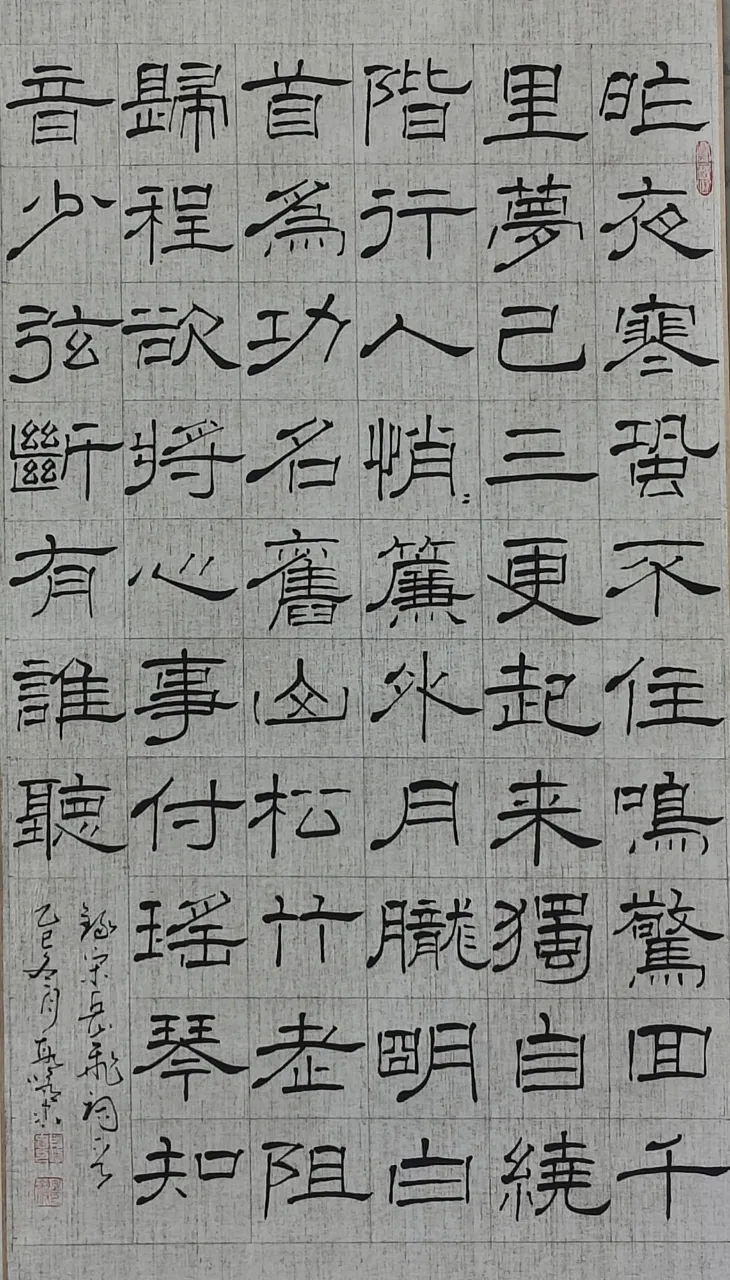 昨夜寒蛩不住鳴驚回千
里夢已三更起来獨自繞
階行人悄〻簾外月朧朙白
首爲功名舊山松竹老阻
歸程欲將心事付瑶琴知
音少弦斷有誰聽
錄宋岳飛詞一首
乙巳冬月